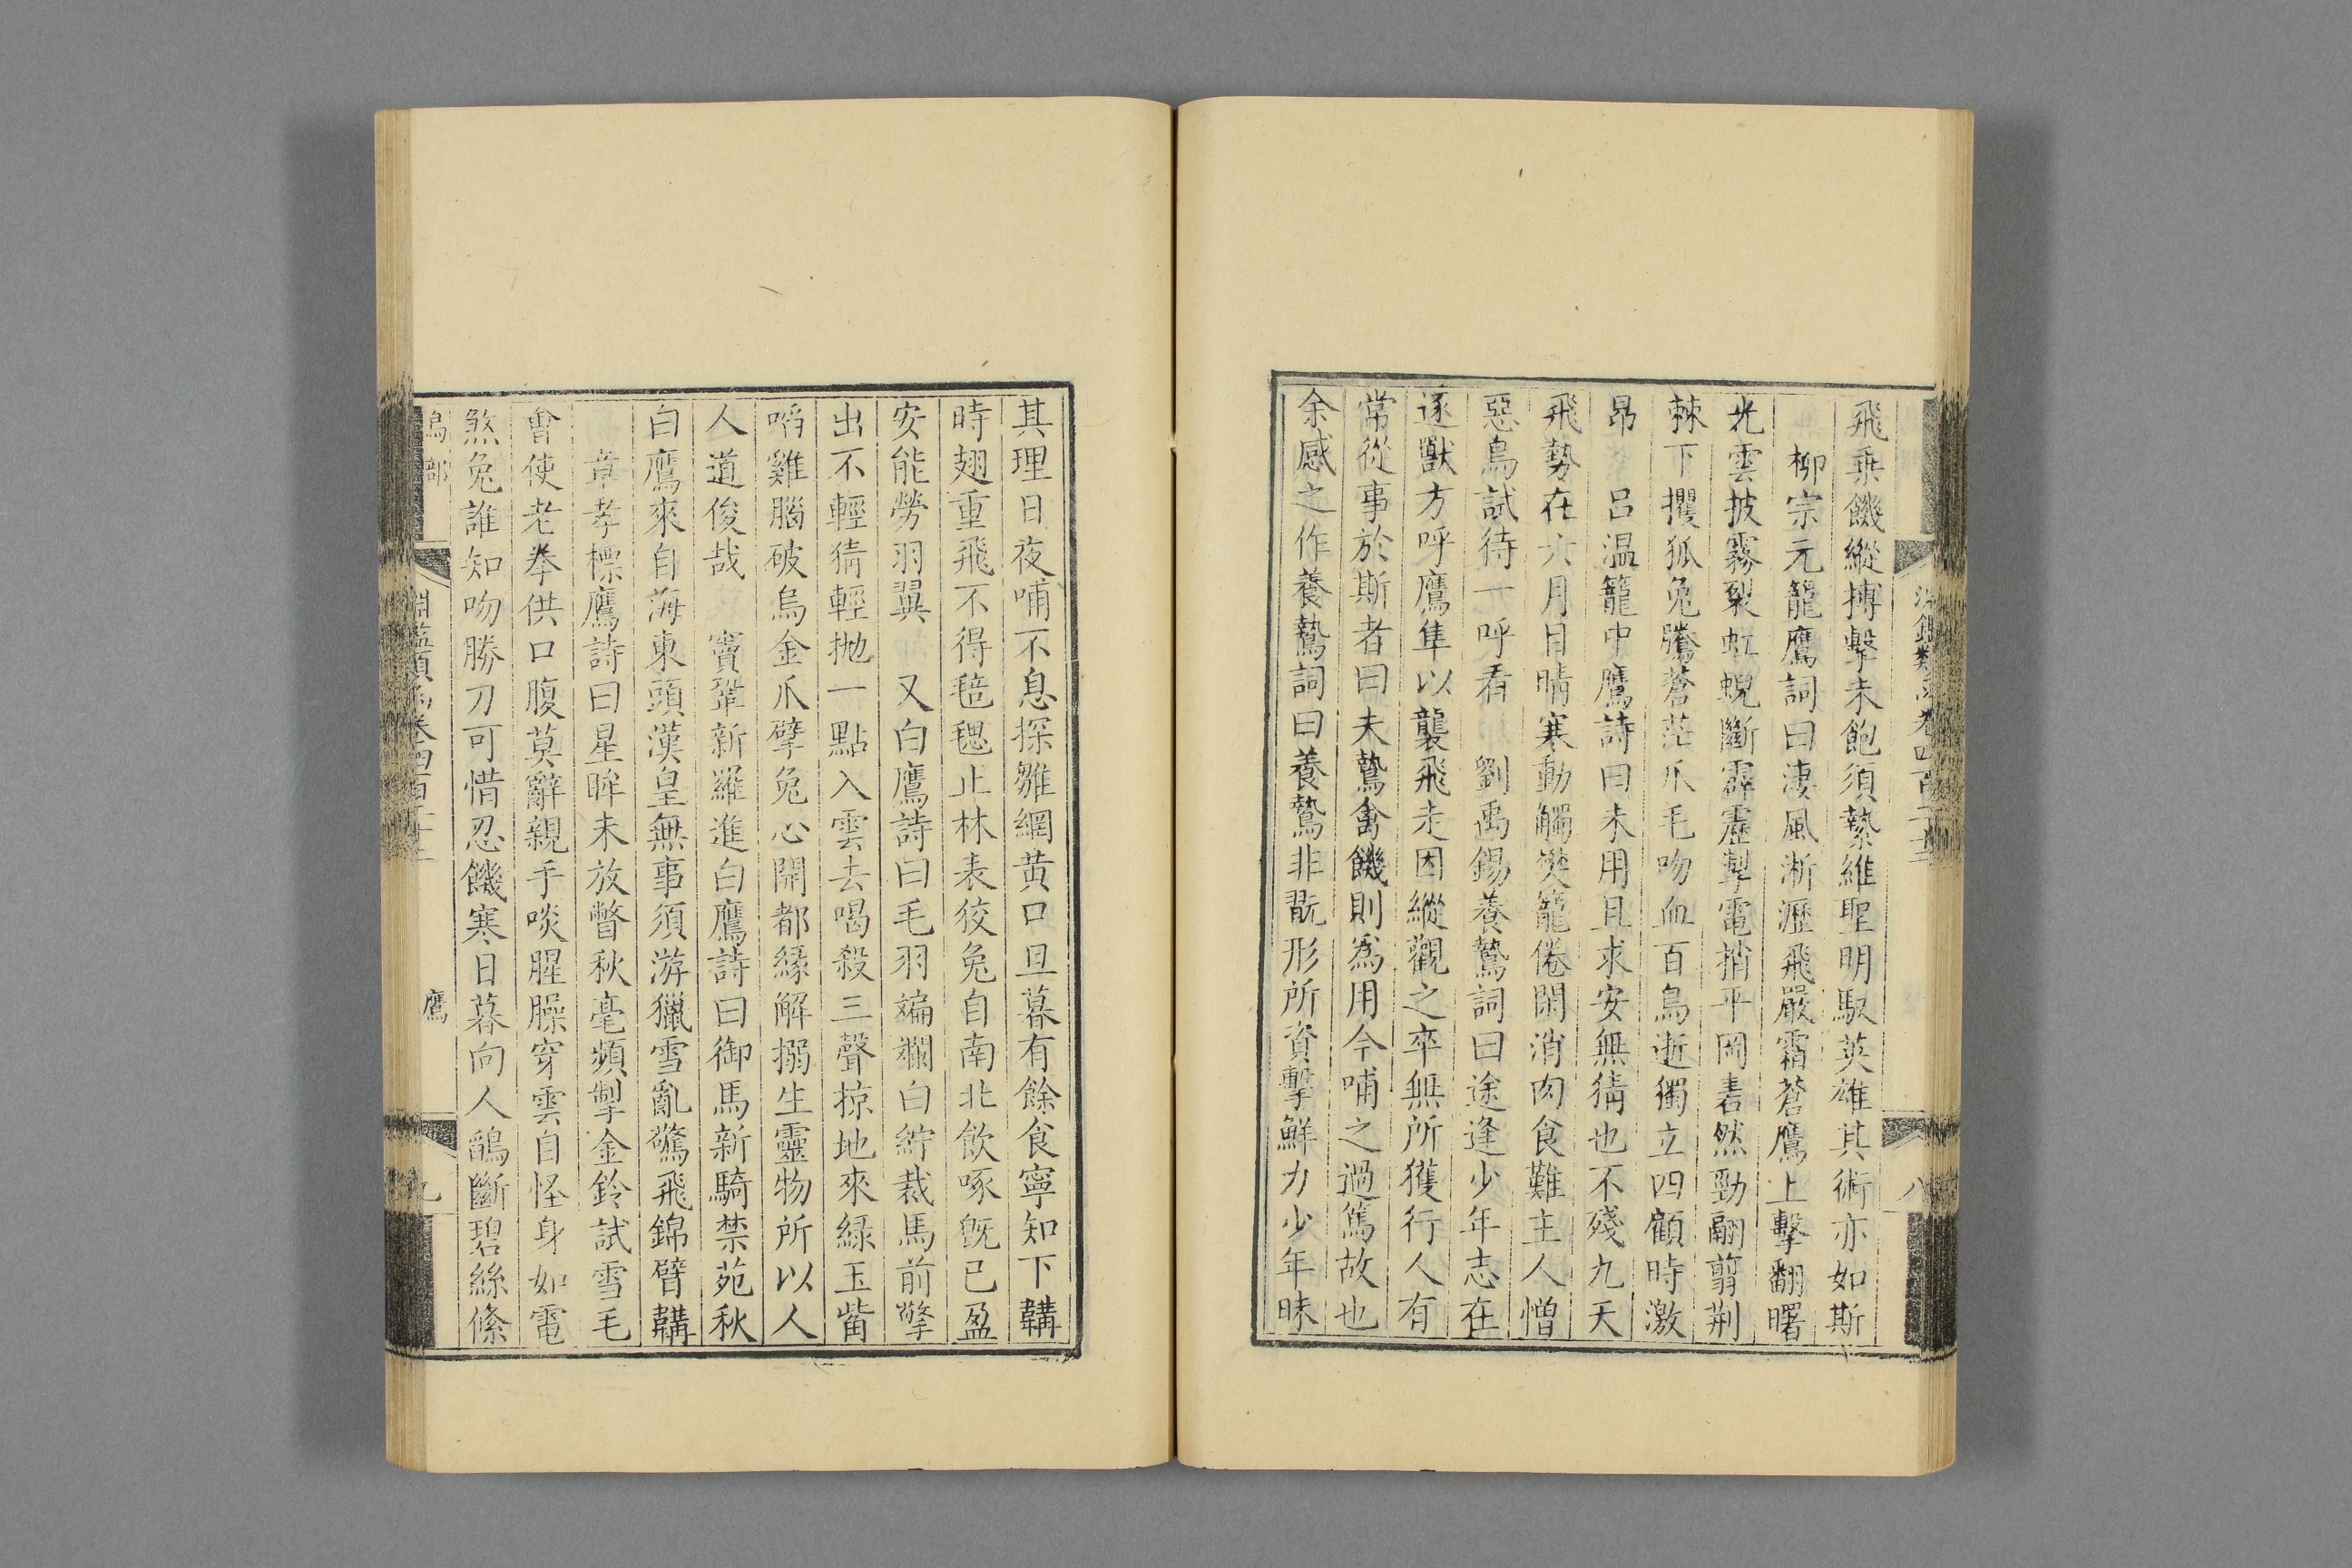 飛乘饑縱搏擊未飽須縶維聖明馭英雄其術亦如斯
柳宗元籠鷹詞曰淒風淅瀝飛嚴霜蒼鷹上擊翻曙
光雲披霧裂虹蜺斷霹靂掣電捎平岡砉然勁翮翦荆
棘下攫狐兔騰蒼茫爪毛吻血百鳥逝獨立四顧時激
昂 吕温籠中鷹詩曰未用且求安無猜也不殘九天
飛勢在六月目晴寒動觸樊籠倦閑消肉食難主人憎
惡鳥試待一呼看 劉禹錫養鷙詞曰途逢少年志在
逐獸方呼鷹隼以襲飛走因縱觀之卒無所獲行人有
常從事於斯者曰夫鷙禽饑則為用今哺之過篤故也
余感之作養鷙詞曰養鷙非翫形所資擊鮮力少年昧
其理日夜哺不息探雛網黃口旦暮有餘食寧知下韝
時翅重飛不得毰毸止林表狡兔自南北飲啄既已盈
安能勞羽翼 又白鷹詩曰毛羽斒斕白紵裁馬前擎
出不輕猜輕拋一點入雲去喝殺三聲掠地來綠玉觜
啗雞腦破烏金爪擘兔心開都緣解搦生靈物所以人
人道俊哉 竇鞏新羅進白鷹詩曰御馬新騎禁苑秋
白鷹來自海東頭漢皇無事須游獵雪亂驚飛錦臂韝
章孝標鷹詩曰星眸未放瞥秋毫頻掣金鈴試雪毛
會使老拳供口腹莫辭親手啖腥臊穿雲自怪身如電
煞兔誰知吻勝刀可惜忍饑寒日暮向人鵮斷碧絲絛
鳥部
鷹
九